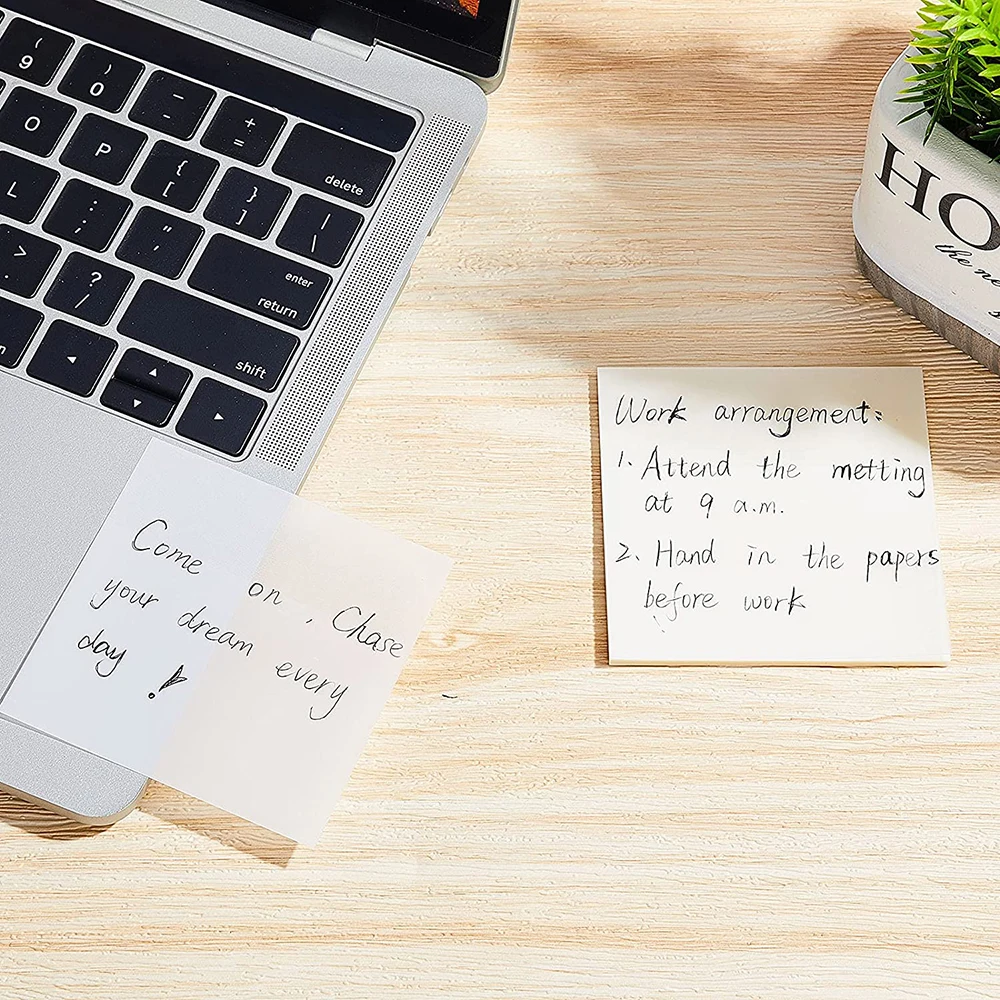 (
9
)
0
_
-
+
=
delete
O
P
{
[
}
]
|
\
L
:
;
"
'
enter
return
>
.
?
/
shift
HO
the ne
Work arrangement:
1. Attend the metting
at 9 a.m.
2. Hand in the papers
before work
Come on, Chase
your dream every
day!